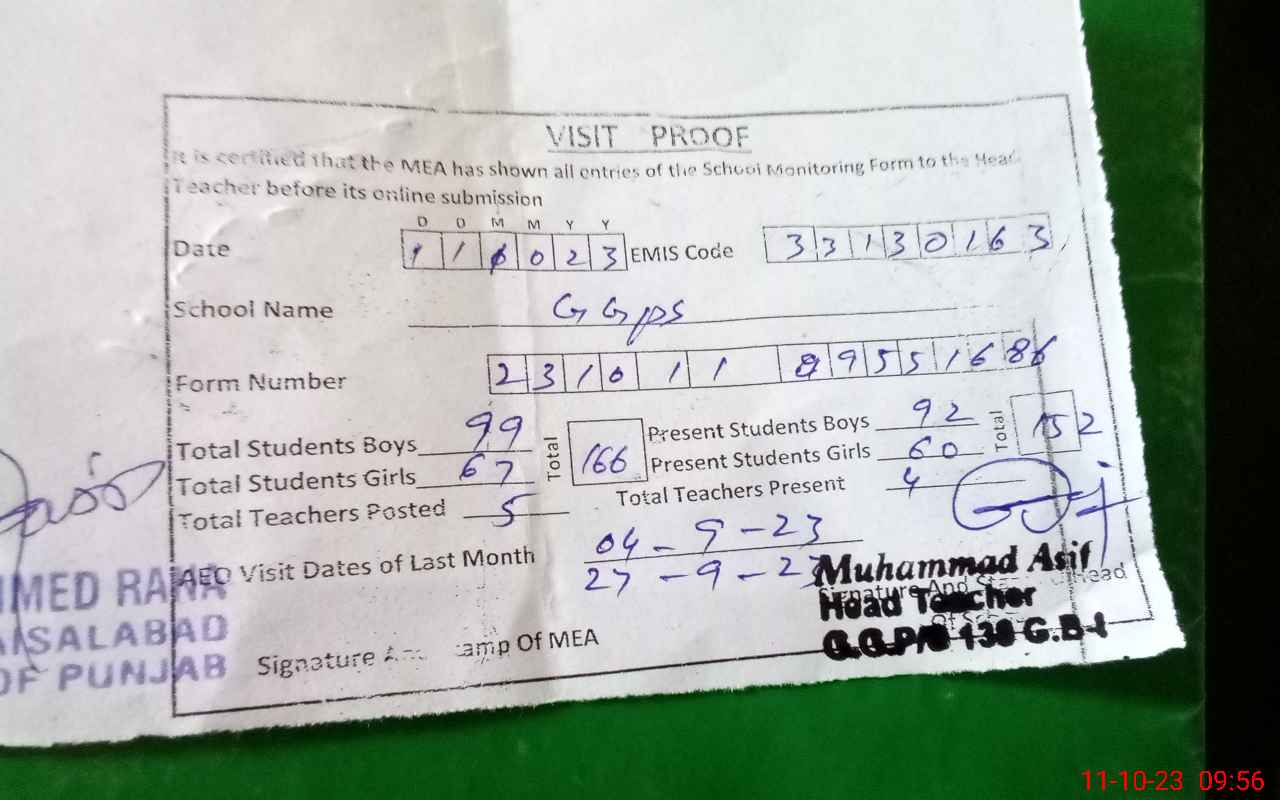 VISIT PROOF
It is certified that the MEA has shown all entries of the School Monitoring Form to the Head
Teacher before its online submission
D D M M Y Y
Date 1 1 1 0 2 3 EMIS Code 3 3 1 3 0 1 6 3
School Name G Gps
Form Number 2 3 1 0 1 1 8 9 5 5 1 6 8 6
Total Students Boys 99 Total 166 Present Students Boys 92 Total 152
Total Students Girls 67 Present Students Girls 60
Total Teachers Posted 5 Total Teachers Present 4
AEO Visit Dates of Last Month 04 - 9 - 23
27 - 9 - 23
Muhammad Asif
Signature And Head
Head Teacher
G.G.P/S 138 G.B-I
MED RANA
AISALABAD
OF PUNJAB
Signature Of MEA
11-10-23 09:56